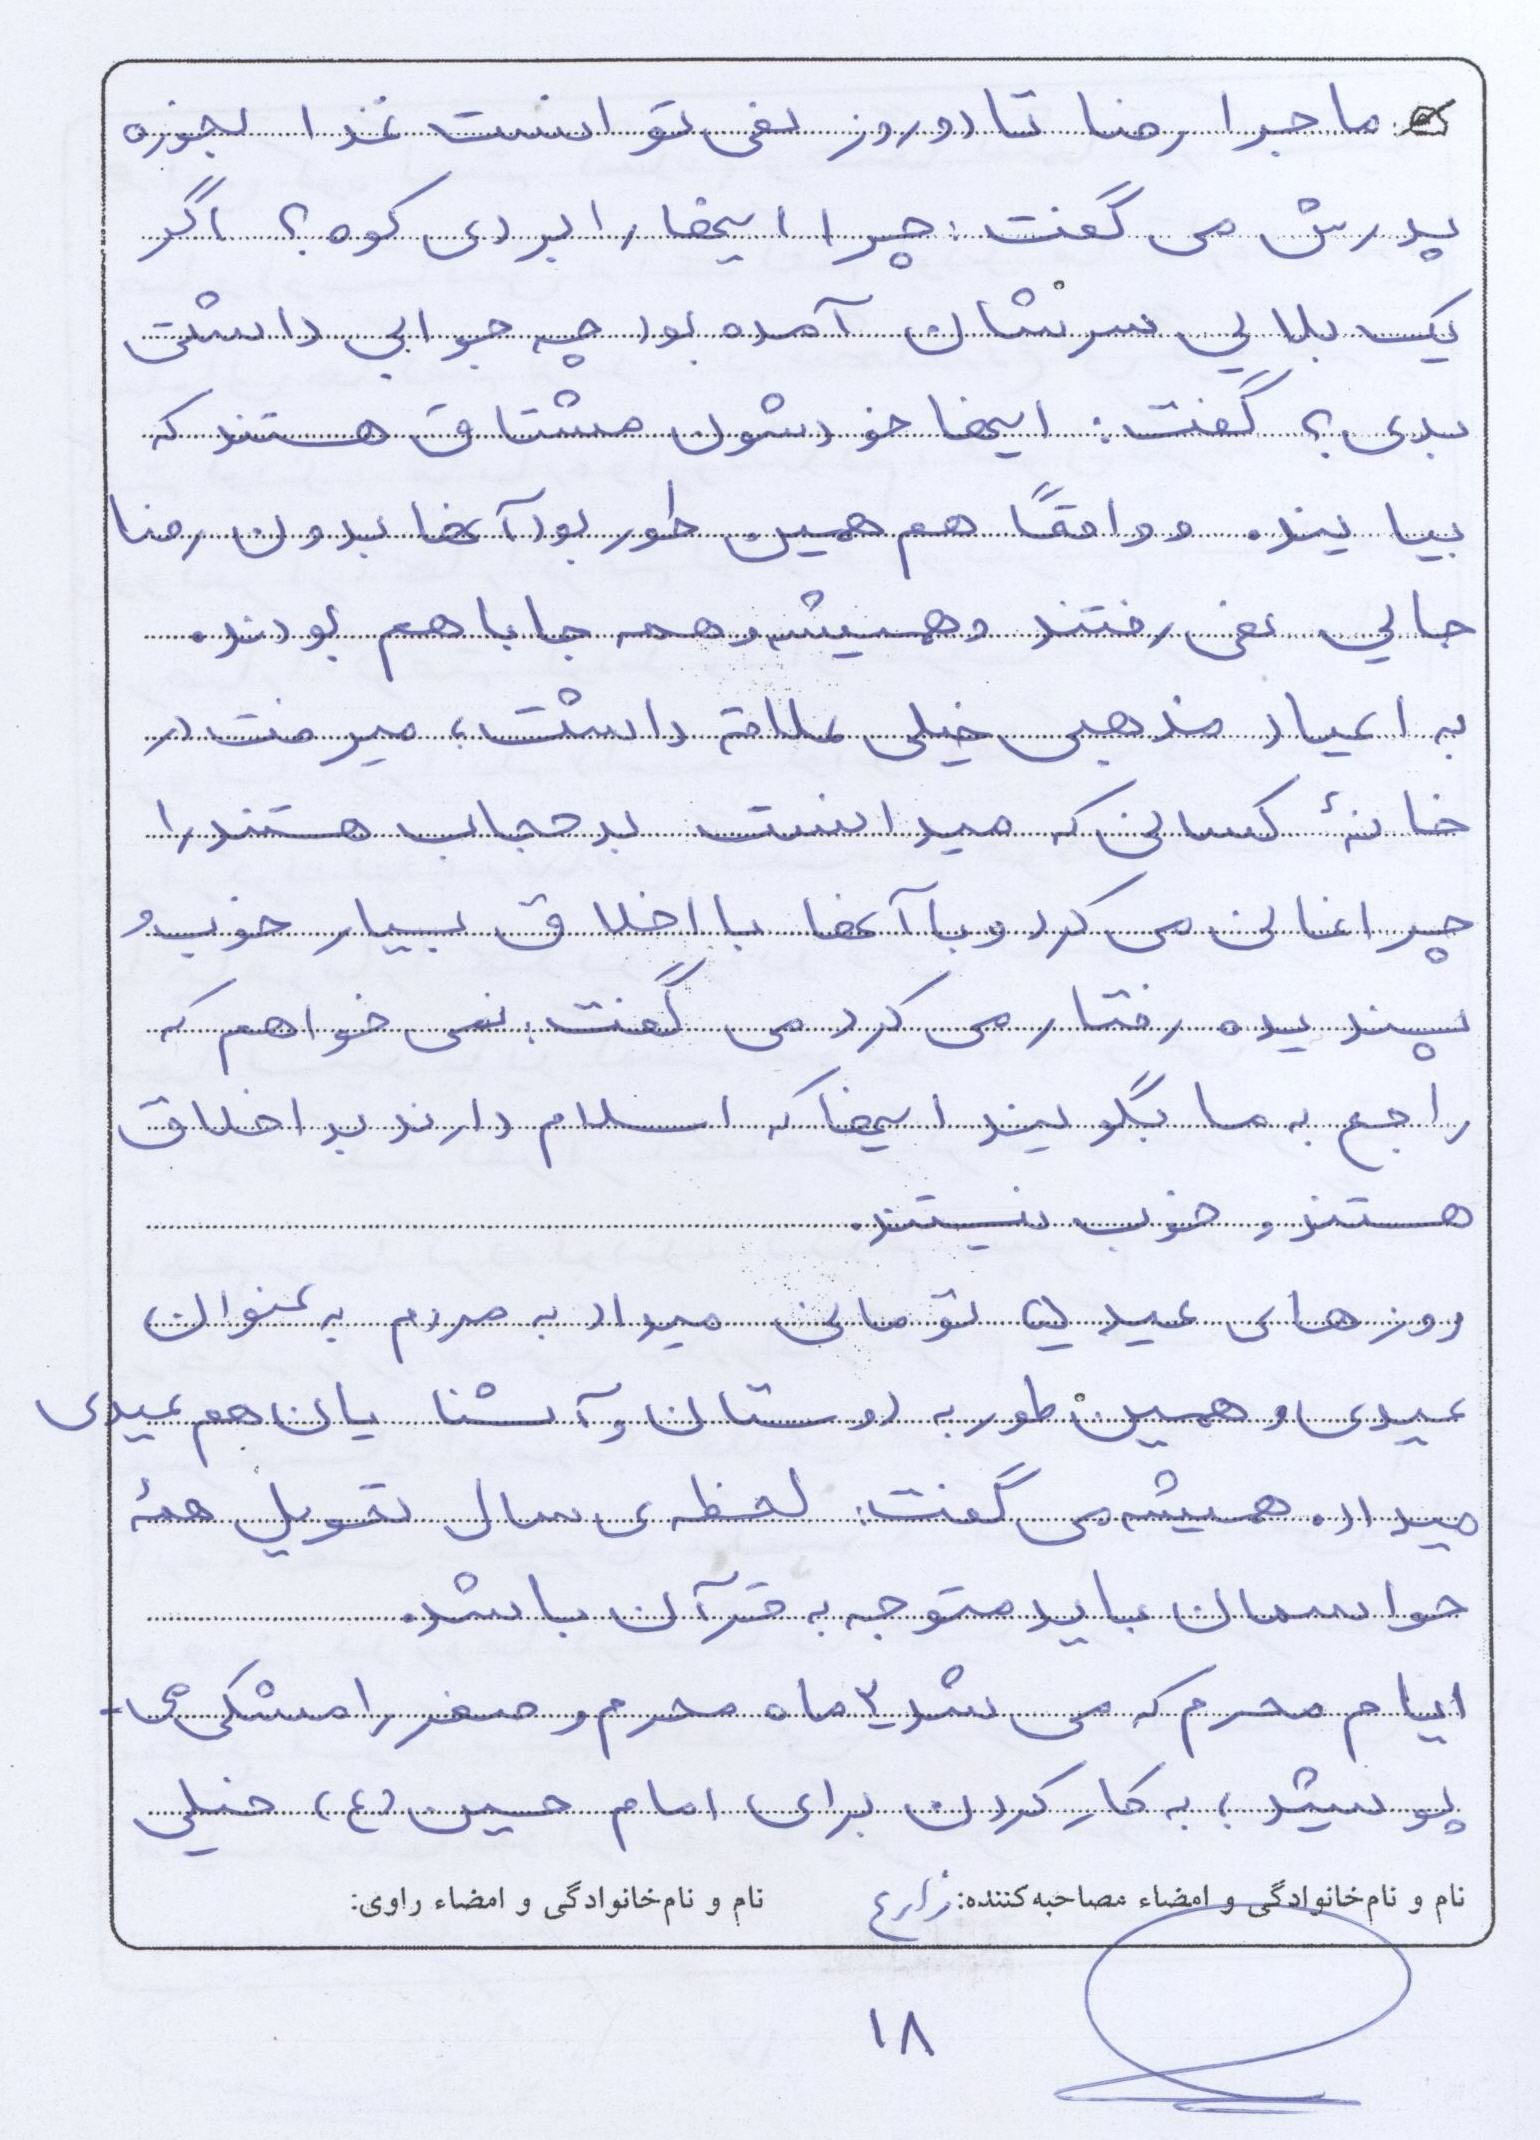 ماجرا رضا تا دو روز نمی توانست غذا بخوره
پدرش می گفت: چرا اینها را بردی کوه؟ اگر
یک بلایی سرشان آمده بود چه جوابی داشتی
بدی؟ گفت: اینها خودشون مشتاق هستند که
بیایند. و واقعاً هم همین طور بود آنها بدون رضا
جایی نمی رفتند و همیشه و همه جا با هم بودند.
به اعیاد مذهبی خیلی علاقه داشت، میرفت در
خانهٔ کسانی که میدانست بد حجاب هستند را
چراغانی می کرد و با آنها با اخلاق بسیار خوب و
پسندیده رفتار می کرد می گفت: نمی خواهم که
راجع به ما بگویند اینها که اسلام دارند بد اخلاق
هستند و خوب نیستند.
روزهای عید ۵ تومانی میداد به مردم به عنوان
عیدی و همین طور به دوستان و آشنایان هم عیدی
میداد. همیشه می گفت: لحظه ی سال تحویل همهٔ
حواسمان باید متوجه به قرآن باشد.
ایام محرم که می شد ۲ ماه محرم و صفر را مشکی می-
پوشید، به کار کردن برای امام حسین (ع) خیلی
نام و نام‌خانوادگی و امضاء مصاحبه‌کننده: زارع
نام و نام‌خانوادگی و امضاء راوی:
۱۸